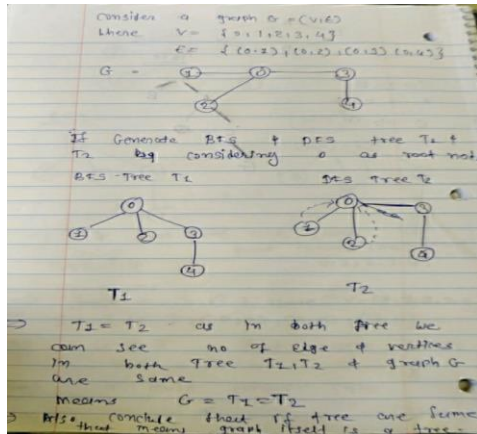 consider a graph G = (V, E)
where V = {0, 1, 2, 3, 4}
E = {(0,1), (0,2), (0,3) (0,4)}
G = 1 0 3
2 4
If Generate BFS & DFS tree T1 &
T2 by considering 0 as root not
BFS - Tree T1 DFS Tree T2
0 0 3
1 2 3 1 2
4 4
T1 T2
⇒ T1 = T2 as in both tree we
can see no of edge & vertices
in both Tree T1, T2 & graph G
are same
means G = T1 = T2
⇒ Also conclude that if tree are same
that means graph itself is a tree.